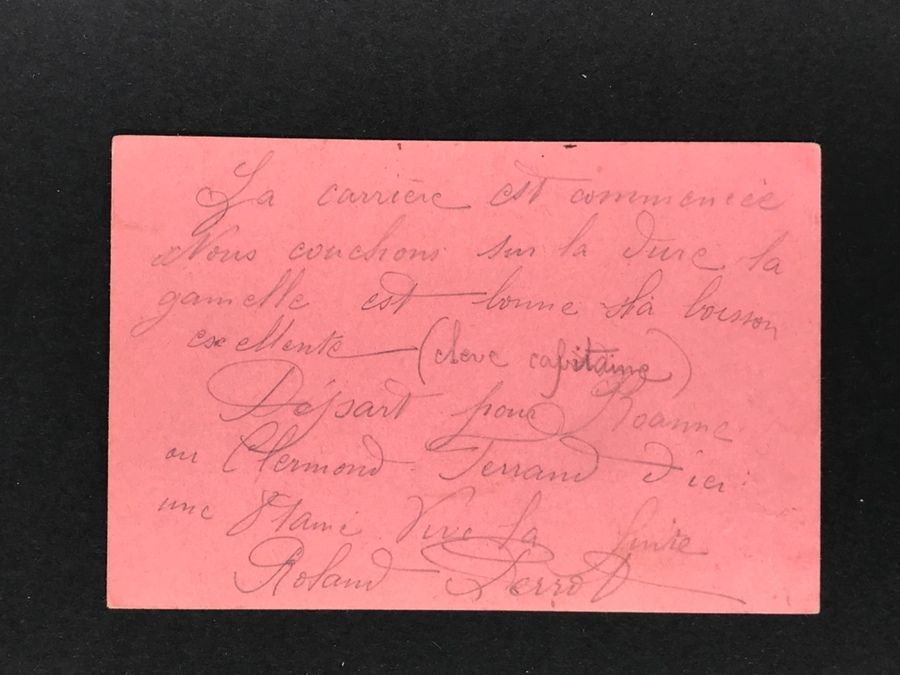 La carrière est commencée
Nous couchons sur la dure la
gamelle est bonne & la boisson
excellente (eleve capitaine)
Départ pour Roanne
ou Clermond Ferrand d'ici
une 8taine Vive la
Roland Perrot